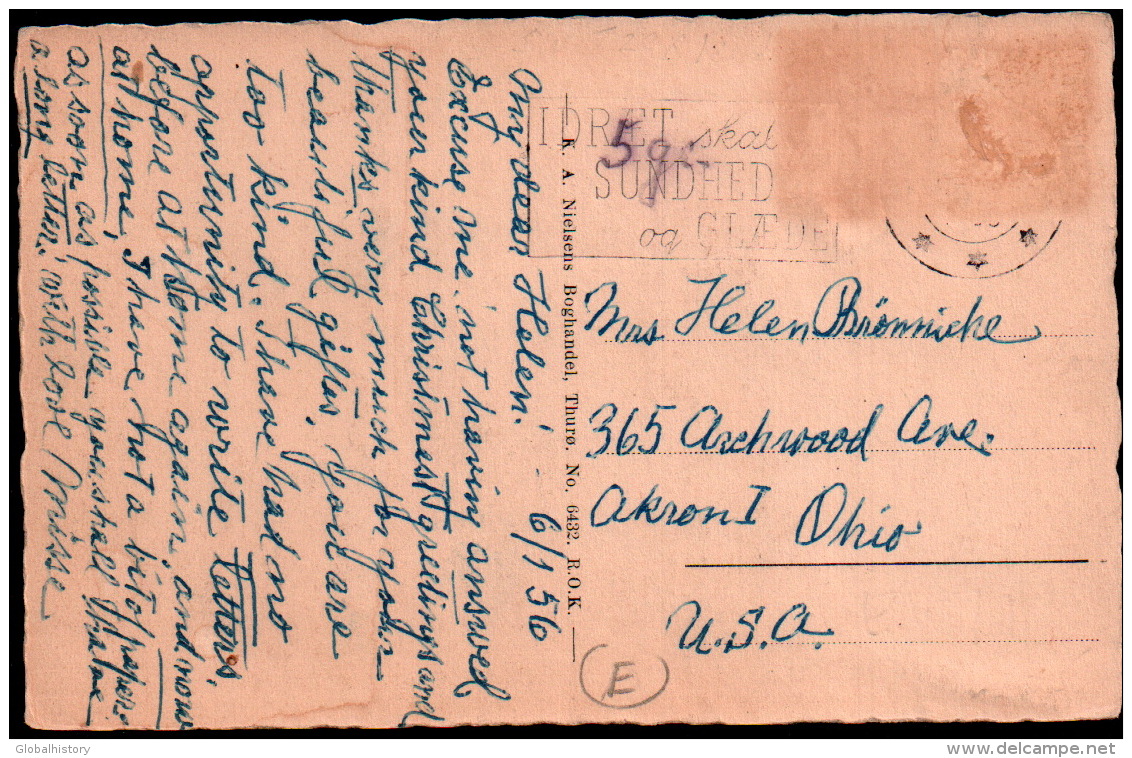 My dear Helen! - 6/1 56
Excuse me not having answed
your kind Christmest greetings and
thanks very much for your
beautiful gifts. You are
too kind. I have had no
opportunity to write letters,
before at time again, and now
at home, I have not a bit of paper
as soon as possible you shall have
a long letter, with love Misse
K. A. Nielsens Boghandel, Thurø. No. 6432. R.O.K.
IDRÆT skal
5 gr.
SUNDHED
og GLÆDE
Mrs Helen Brønniche
365 Archwood Ave.
Akron I Ohio
U.S.A.
E
Globalhistory
www.delcampe.net